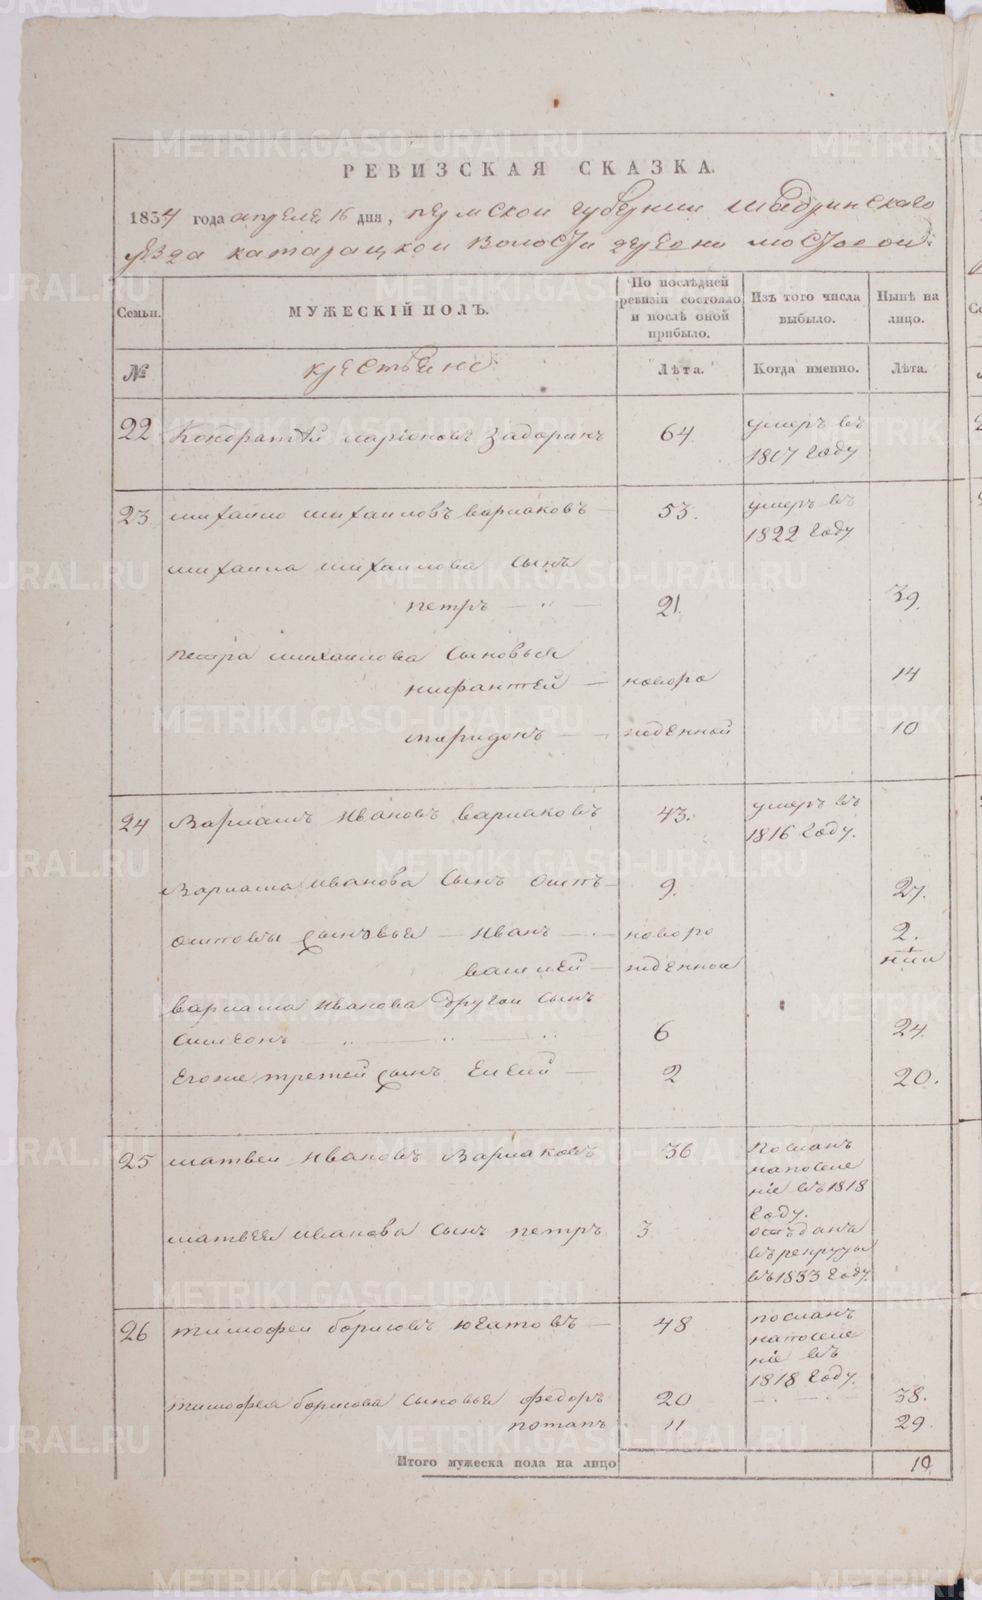 РЕВИЗСКАЯ СКАЗКА.
1834 года апреля 16 дня, пермской губернии Шадринскаго
уезда катарацкой волости деревни мостовой:
Семьи.
МУЖЕСКІЙ ПОЛЪ.
По послѣдней ревизіи состояло и послѣ оной прибыло.
Изъ того числа выбыло.
Нынѣ на лицо.
№
крестьяне:
Лѣта.
Когда именно.
Лѣта.
22 Кондратей ларіоновъ Задоринъ 64. умеръ въ
1817 году
23. михайло михаиловъ варлаковъ 53. умеръ въ
1822 году
михаила михаилова сынъ
петръ — " — 21. 39.
петра михаилова сыновья
нифантей — новоро 14
спиридонъ — жденной 10
24 Варламъ Ивановъ варлаковъ 43. умеръ въ
1816 году.
Варлама иванова сынъ осипъ 9. 27.
осиповы сыновья — иванъ — новоро 2.
василей — жденной
варлама иванова другой сынъ
симеонъ 6 24.
Егоже третей сынъ Елесей — 2 20.
25 матвеи Ивановъ Варлаковъ 36 посланъ
напоселе
ніе въ 1818
году.
матвея иванова сынъ петръ 3 отъданъ
въ рекруты
въ 1833 году.
26 тимофеи борисовъ — 48 посланъ
напоселе
ніе въ
1818 году.
тимофея борисова сыновья федоръ 20 38.
потапъ 11 29.
Итого мужеска пола на лицо 10
METRIKI.GASO-URAL.RU